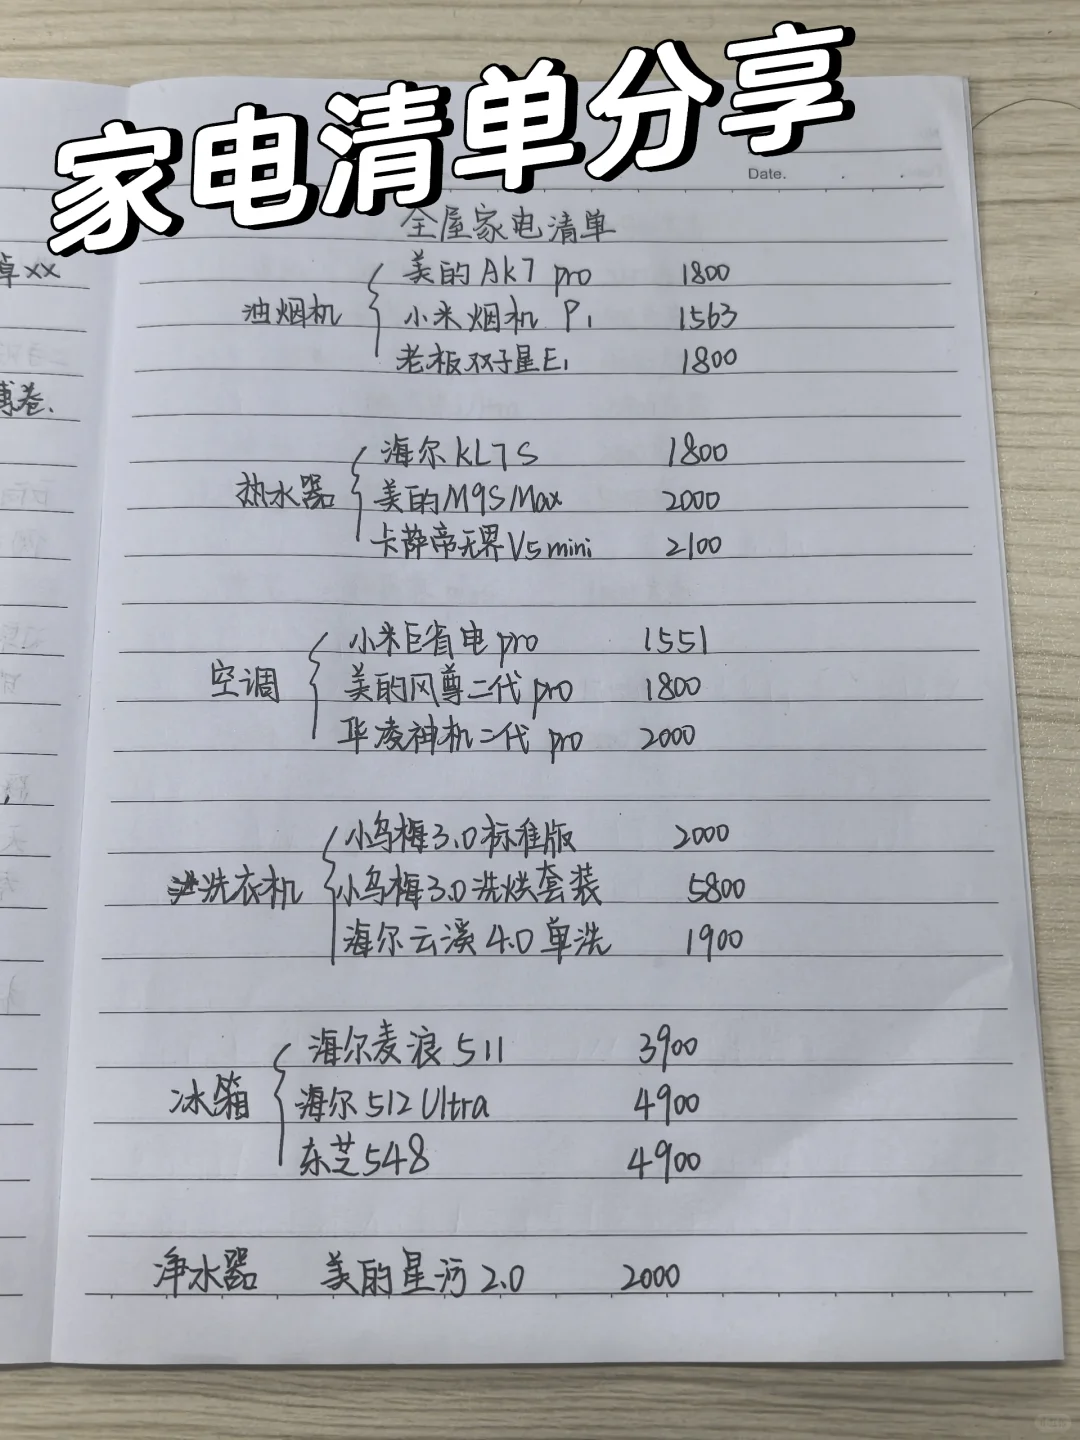 家电清单分享
Date.
全屋家电清单
美的 AK7 pro 1800
油烟机 小米烟机 P1 1563
老板双子星E1 1800
海尔 KL7S 1800
热水器 美的M9S Max 2000
卡萨帝无界V5mini 2100
小米巨省电pro 1551
空调 美的风尊二代pro 1800
华凌神机二代 pro 2000
小乌梅3.0标准版 2000
洗衣机 小乌梅3.0洗烘套装 5800
海尔云溪4.0单洗 1900
海尔麦浪511 3900
冰箱 海尔512Ultra 4900
东芝548 4900
净水器 美的星河2.0 2000
xx
卷.